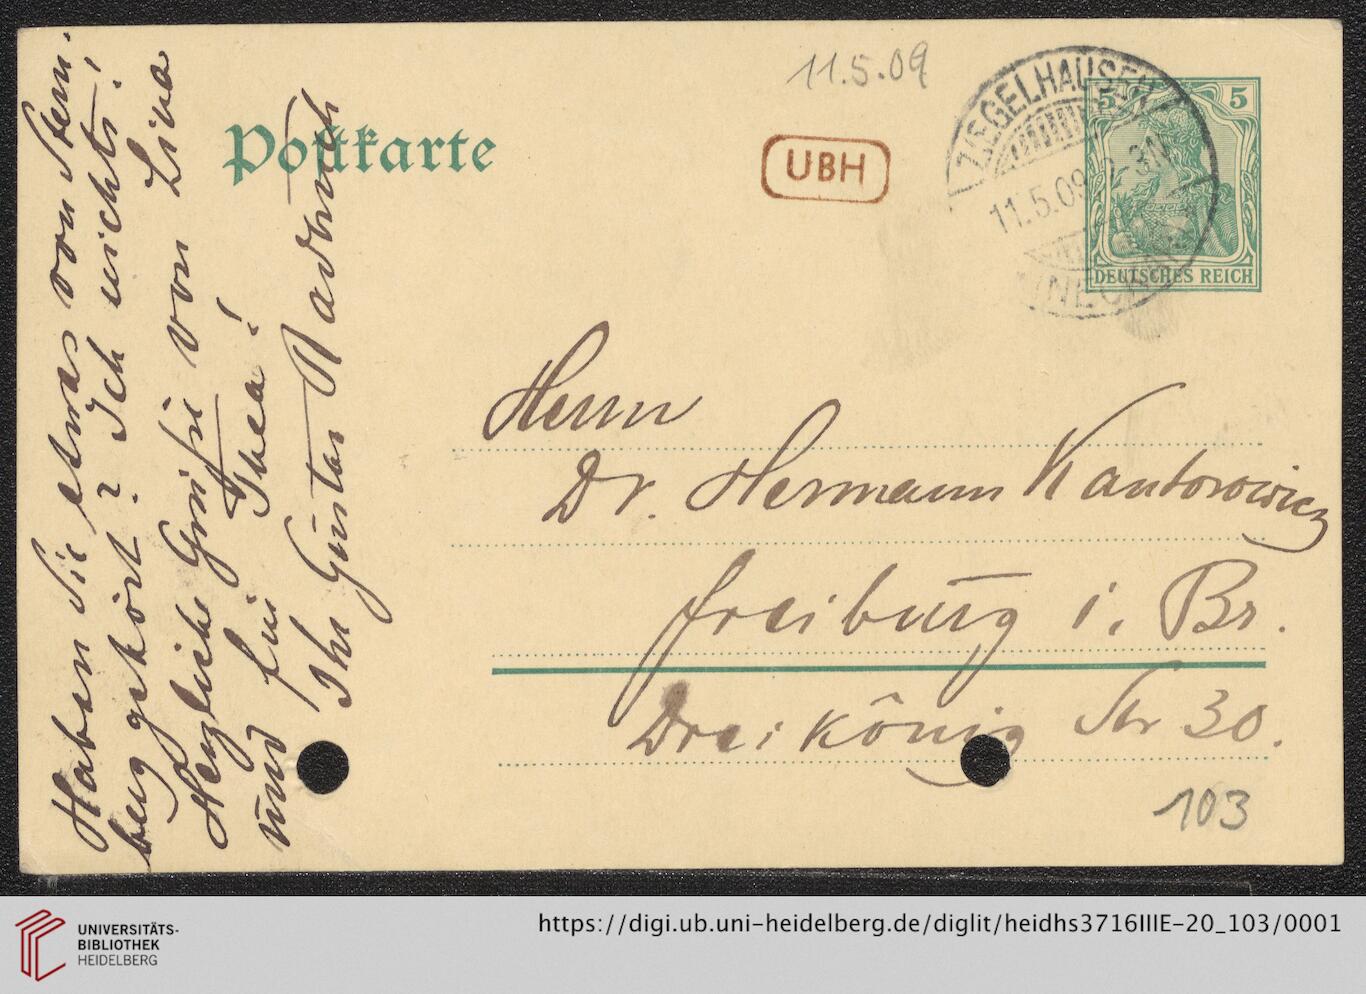 11.5.09
Postkarte
UBH
ZIEGELHAUSEN
11.5.09 2-3N
(NECKAR)
5 5
DEUTSCHES REICH
Herrn
Dr. Hermann Kantorowicz
Freiburg i. Br.
Dreikönig Str 30.
103
Haben Sie etwas von Stern-
berg gehört? Ich nichts!
Herzliche Grüße von Lina
und für Thea!
Ihr Gustav Radbruch
UNIVERSITÄTS-
BIBLIOTHEK
HEIDELBERG
https://digi.ub.uni-heidelberg.de/diglit/heidhs3716IIIE-20_103/0001